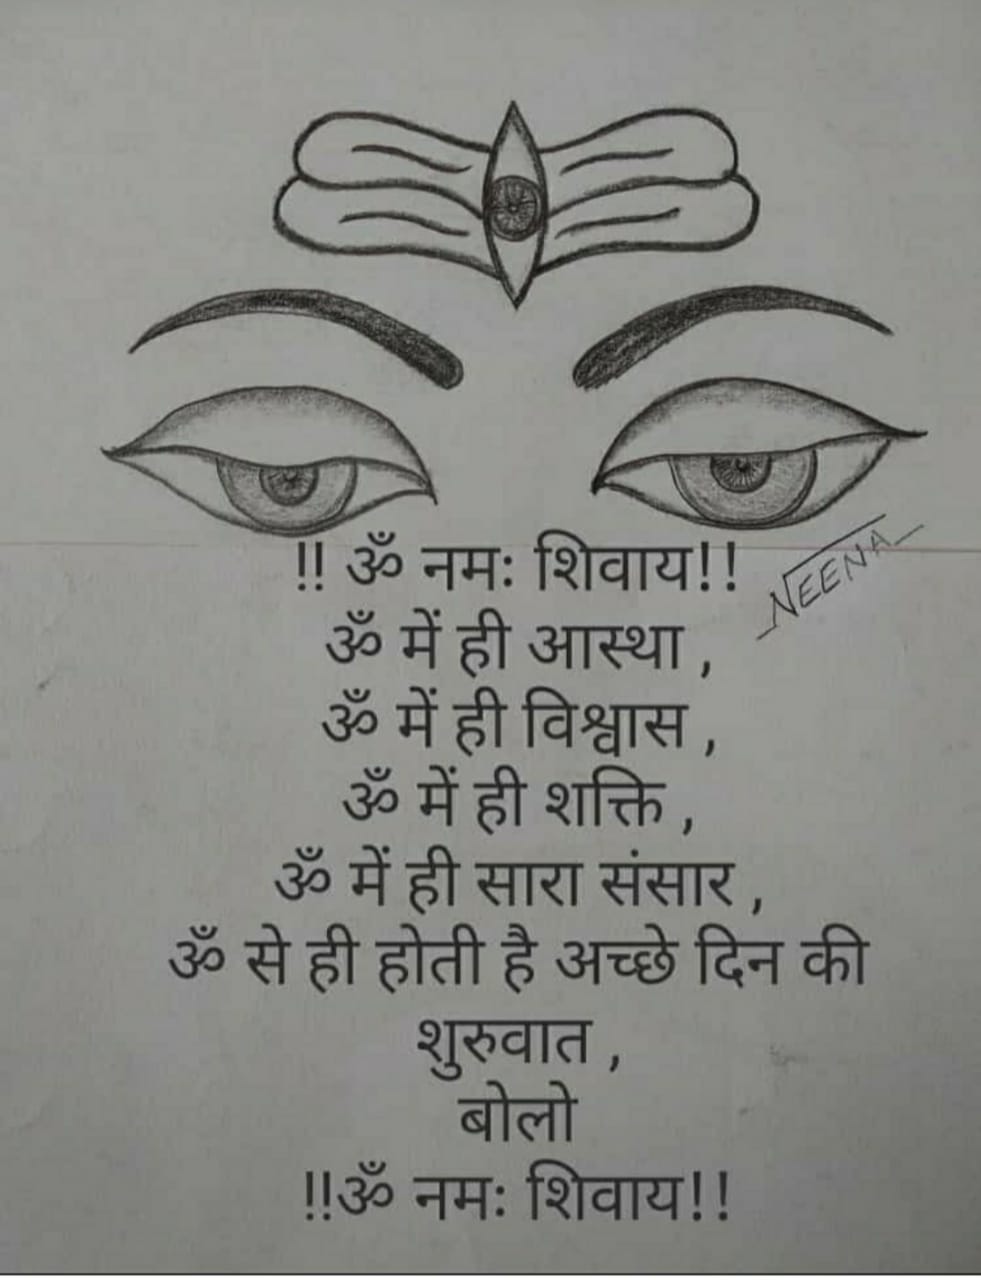 !! ॐ नमः शिवाय!!
NEENA
ॐ में ही आस्था ,
ॐ में ही विश्वास ,
ॐ में ही शक्ति ,
ॐ में ही सारा संसार ,
ॐ से ही होती है अच्छे दिन की
शुरुवात ,
बोलो
!!ॐ नमः शिवाय!!